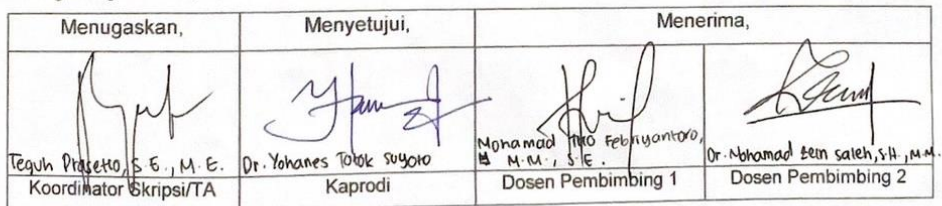 Menugaskan, Menyetujui, Menerima,
Teguh Prasetio, S.E., M.E. Dr. Yohanes Totok Suyoto Mohamad Febriyantoro, M.M., S.E. Dr. Mohamad Zein Saleh, S.H., M.M.
Koordinator Skripsi/TA Kaprodi Dosen Pembimbing 1 Dosen Pembimbing 2